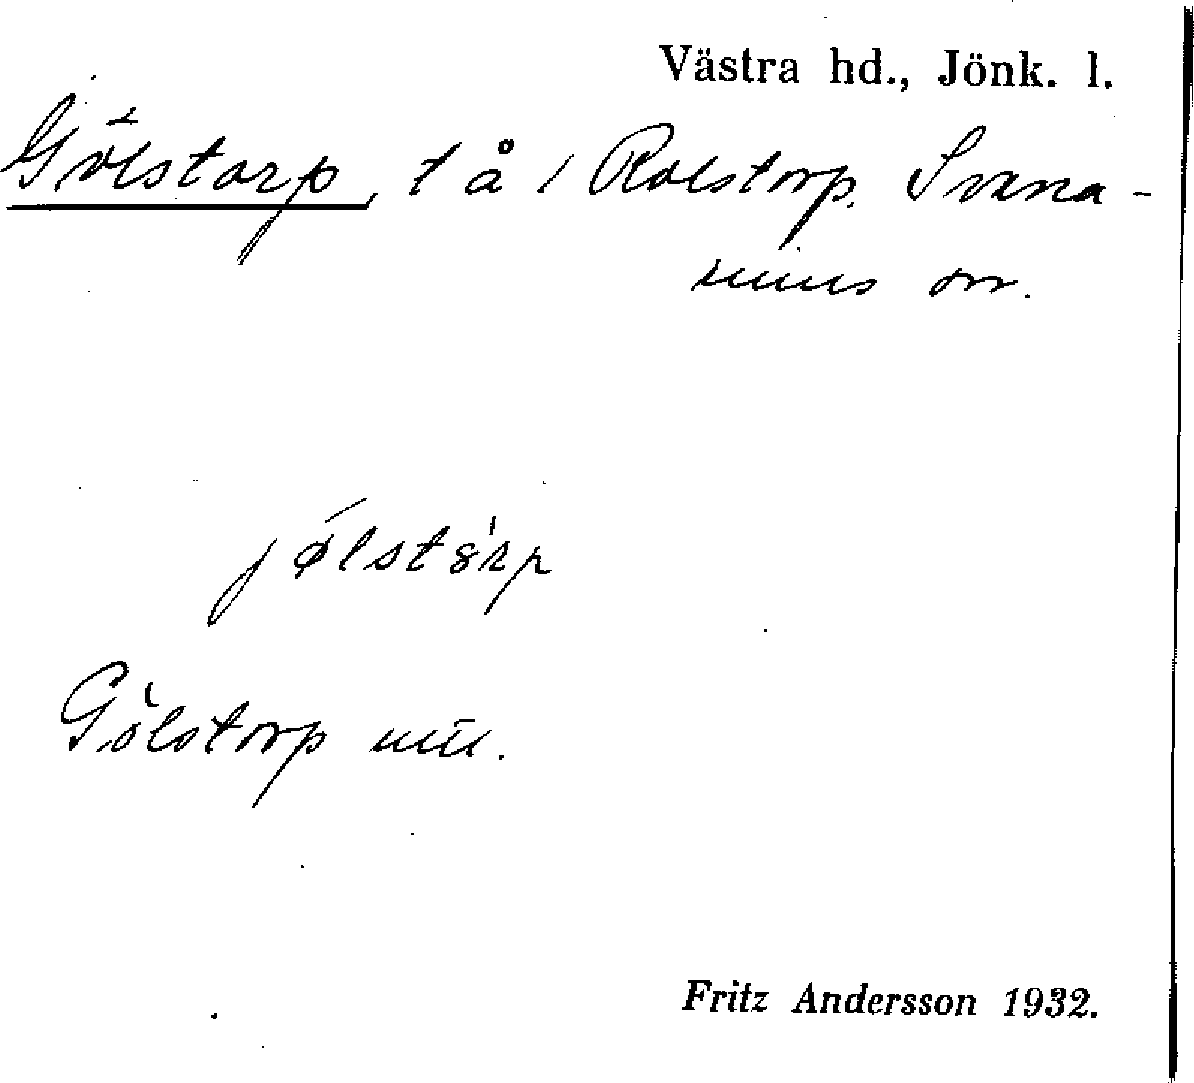 Västra hd., Jönk. l.
Gölstorp, t å / Rolstorp. Svena-
rums sn.
jølstȣrp
Gölstorp
Fritz Andersson 1932.